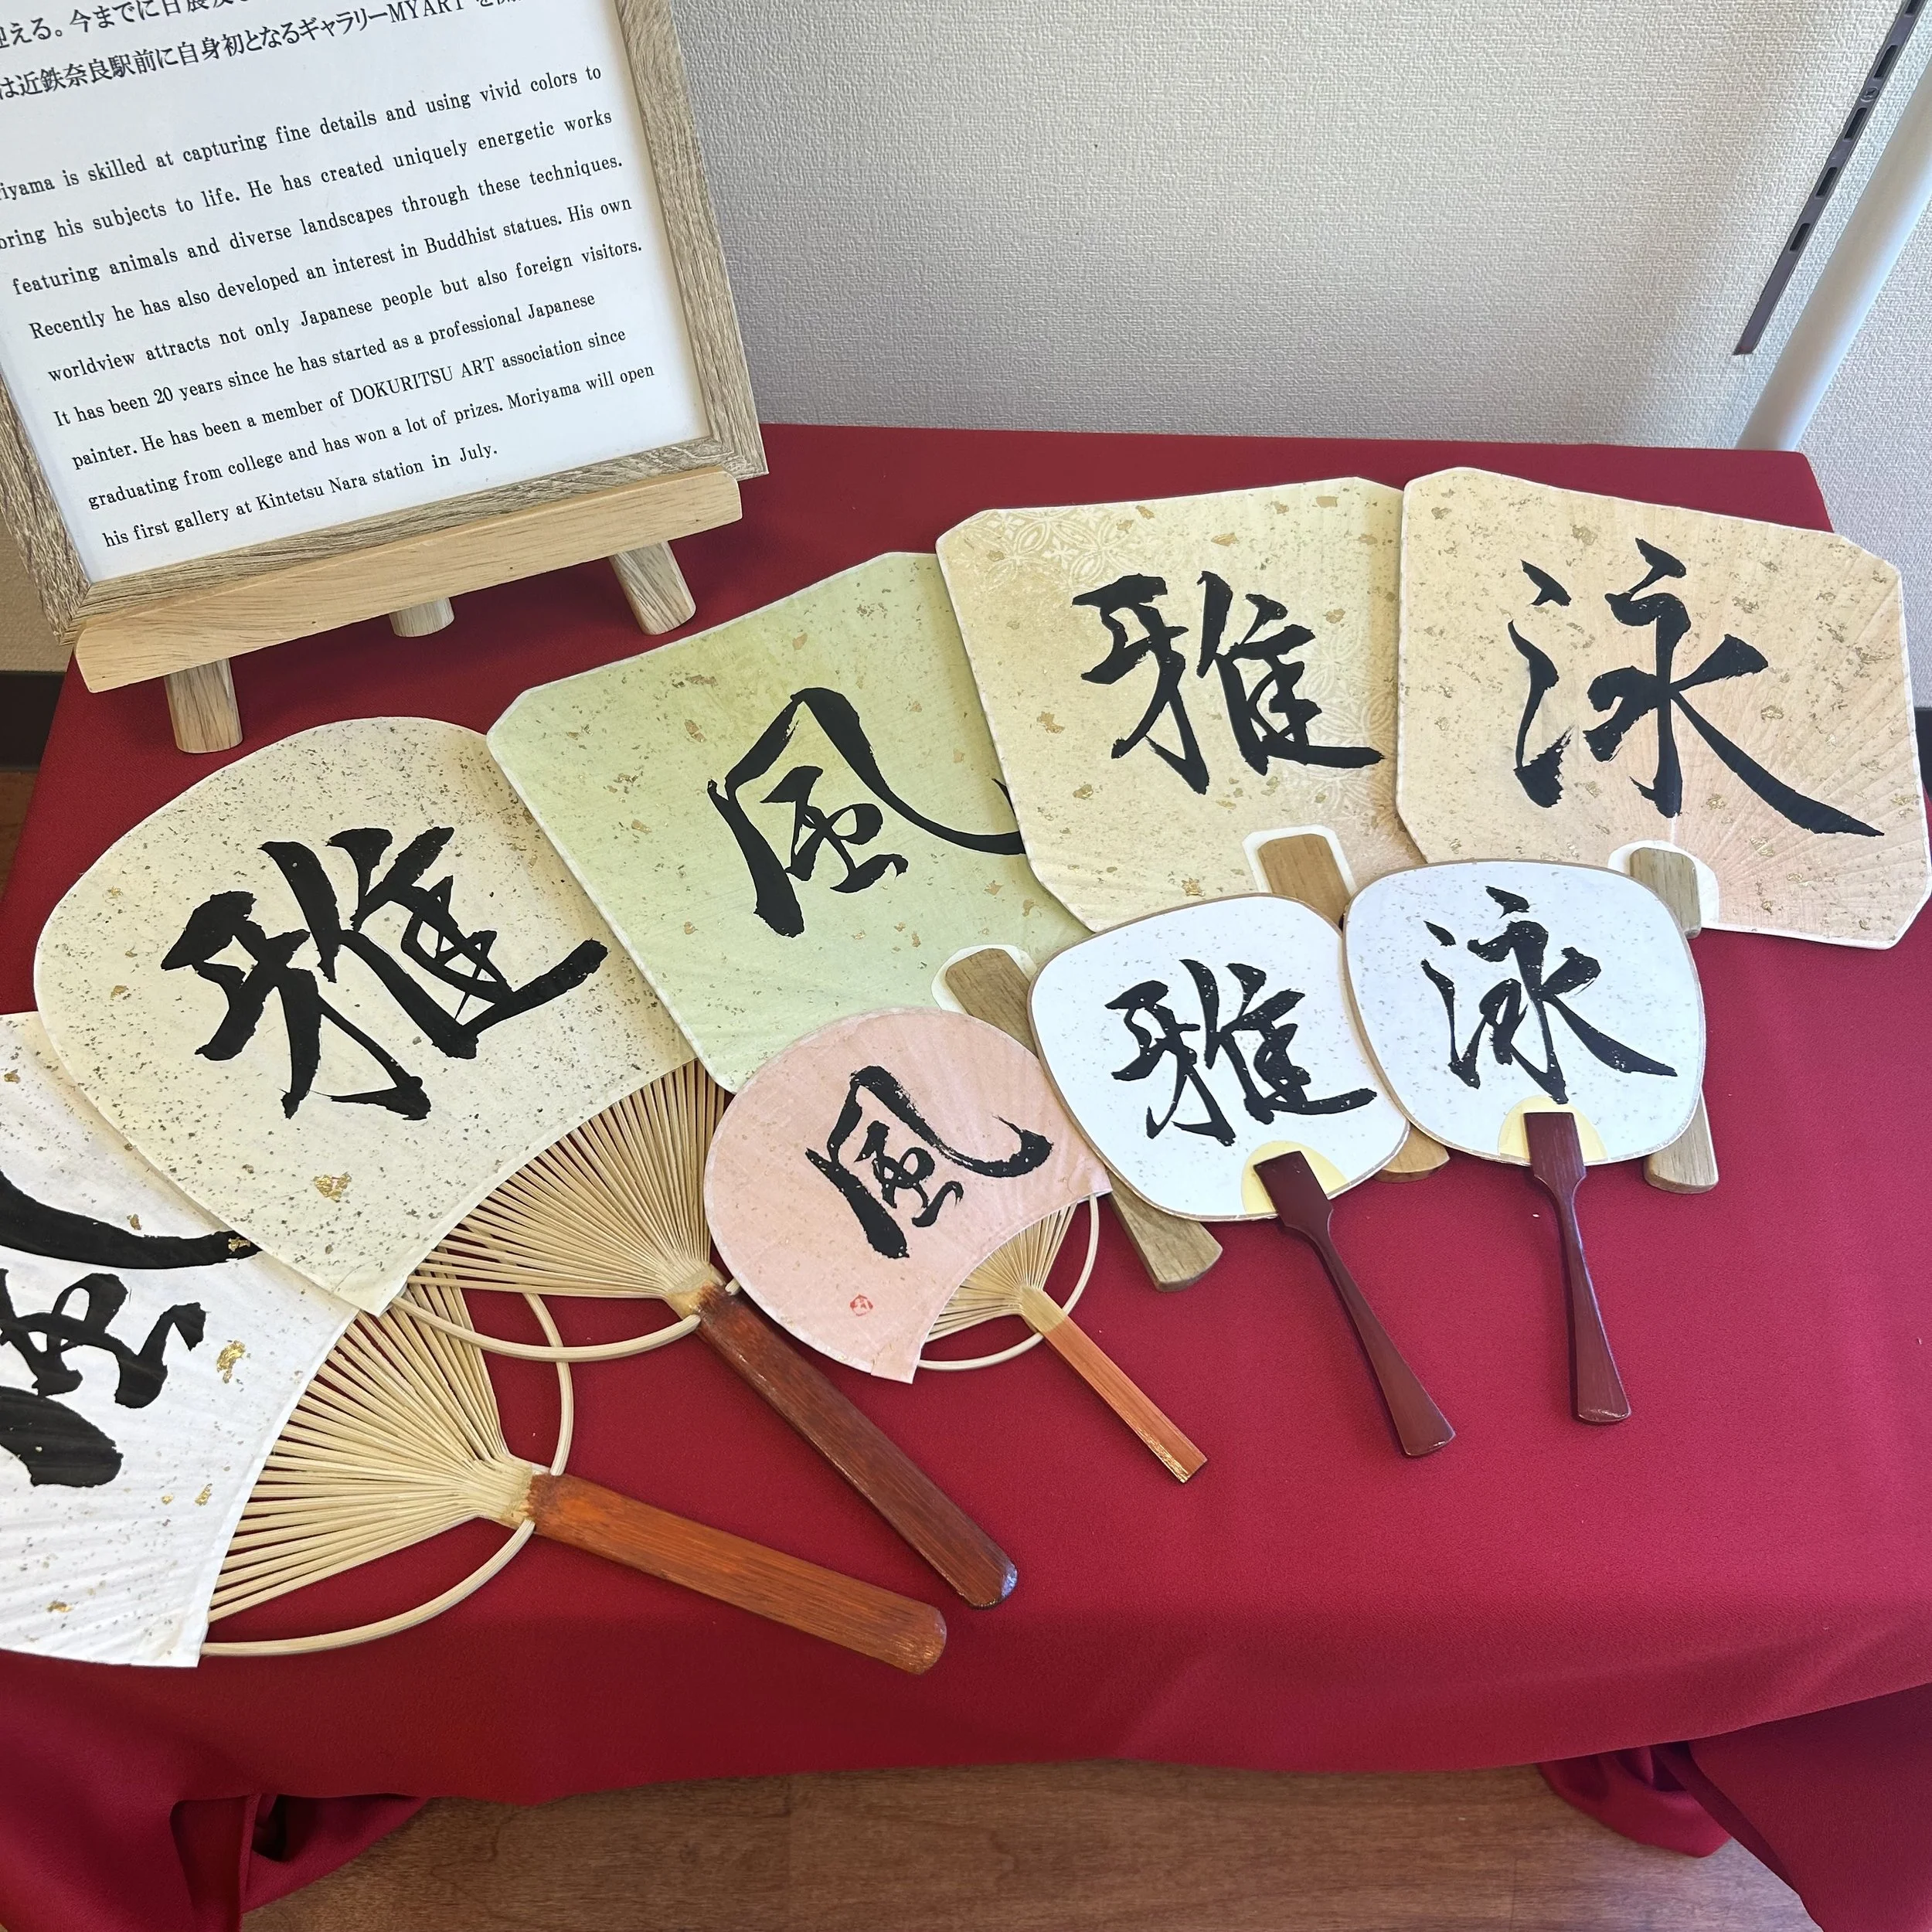 迎える。今までに日展
は近鉄奈良駅前に自身初となるギャラリーMYARTを
riyama is skilled at capturing fine details and using vivid colors to
bring his subjects to life. He has created uniquely energetic works
featuring animals and diverse landscapes through these techniques.
Recently he has also developed an interest in Buddhist statues. His own
worldview attracts not only Japanese people but also foreign visitors.
It has been 20 years since he has started as a professional Japanese
painter. He has been a member of DOKURITSU ART association since
graduating from college and has won a lot of prizes. Moriyama will open
his first gallery at Kintetsu Nara station in July.
雅
風
雅
泳
風
雅
泳